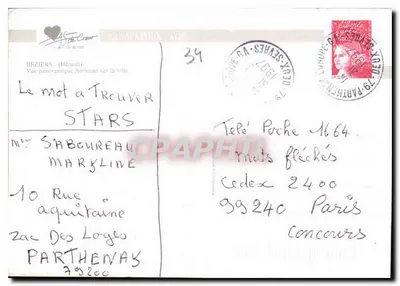 34
BEZIERS - (Hérault)
Vue panoramique Aérienne sur la ville
Le mot a Trouver
STARS
Mme SABOUREAU
MARYLINE
10 Rue
aquitaine
zac Des Loges
PARTHENAY
79200
Télé Poche 1664
Mots fléchés
Cedex 2400
99240 Paris
Concours
79-PARTHENAY
DEUX-SEVRES
1997